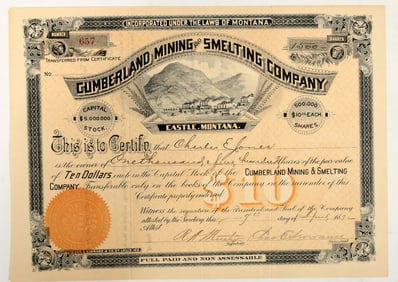 INCORPORATED UNDER THE LAWS OF MONTANA.
NUMBER
657
SHARES
1500
TRANSFERRED FROM CERTIFICATE
No.
CUMBERLAND MINING AND SMELTING COMPANY
CAPITAL
$5.000.000
STOCK.
CASTLE, MONTANA.
500.000
$10.00 EACH
SHARES.
This is to Certify that Charles E. Jones
is the owner of One thousand & five hundred Shares of the par value
of TEN DOLLARS each in the Capital Stock of the CUMBERLAND MINING & SMELTING
COMPANY. Transferable only on the books of the Company on the surrender of this
Certificate properly endorsed.
$10
Witness the signature of the President and Seal of the Company
attested by the Secretary this day of
Attest.
FULL PAID AND NON ASSESSABLE